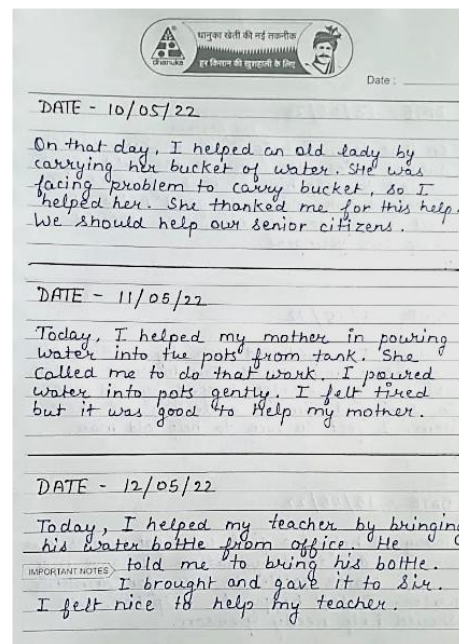 धानुका खेती की नई तकनीक
dhanuka
हर किसान की खुशहाली के लिए
Date :
DATE - 10/05/22
On that day, I helped an old lady by
carrying her bucket of water. She was
facing problem to carry bucket, so I
helped her. She thanked me for this help.
We should help our senior citizens.
DATE - 11/05/22
Today, I helped my mother in pouring
water into the pots from tank. She
called me to do that work. I poured
water into pots gently. I felt tired
but it was good to help my mother.
DATE - 12/05/22
Today, I helped my teacher by bringing
his water bottle from office. He
IMPORTANT NOTES told me to bring his bottle.
I brought and gave it to Sir.
I felt nice to help my teacher.